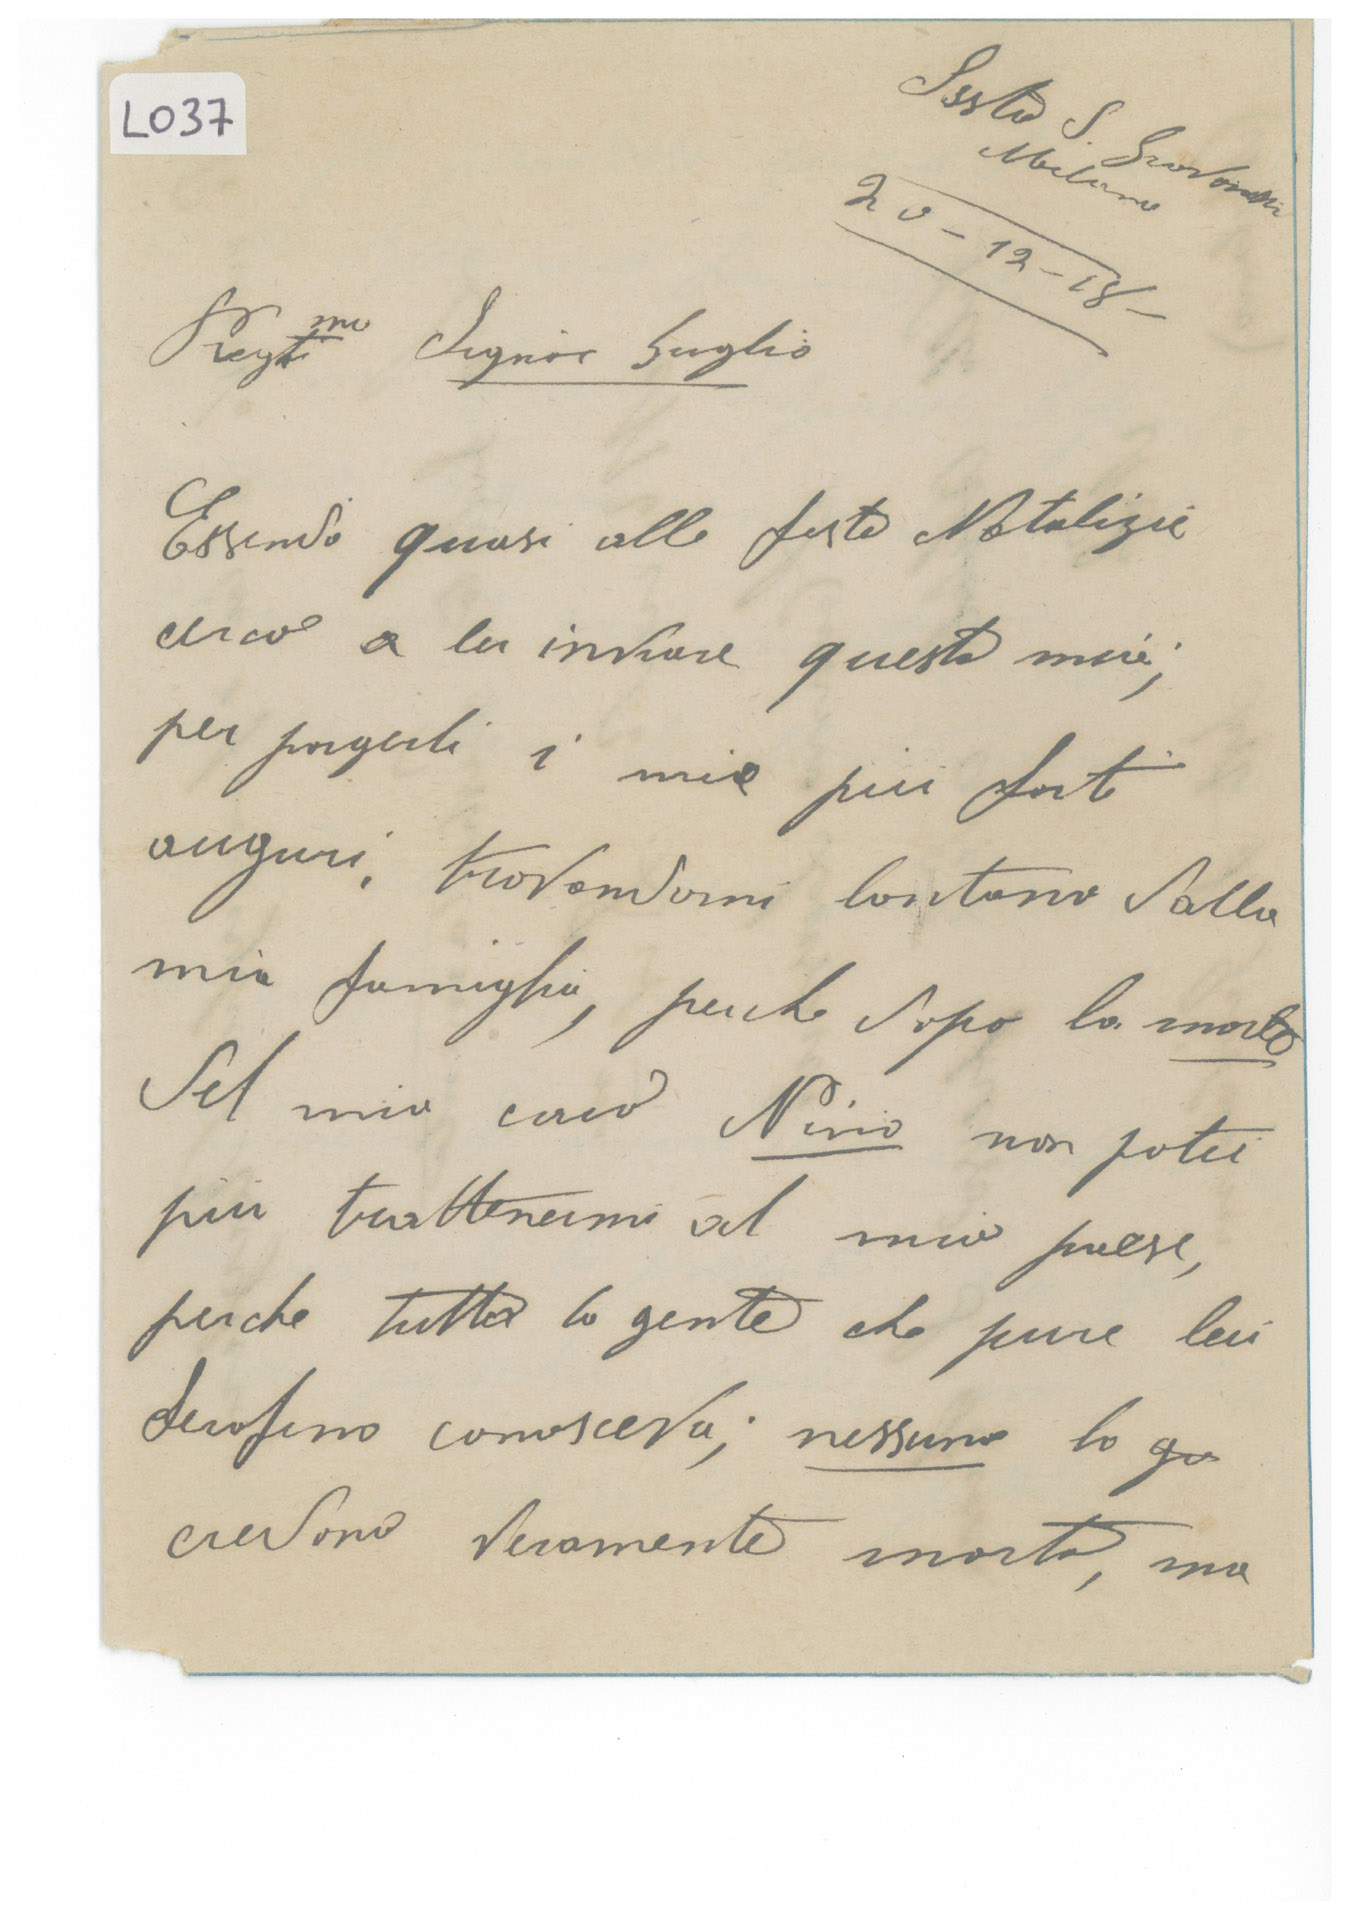 L037
Sesto S. Giovanni
Milano
20-12-18-
Pregt.mo Signor Guglio
Essendo quasi alle feste Natalizie
cerco a lei inviare questa mia;
per porgerli i mie piu forti
auguri, trovandomi lontano dalla
mia famiglia, perche dopo la morte
del mio caro Nino non potei
piu trattenermi al mio paese,
perche tutta la gente che pure lei
Serafino conosceva; nessuno lo
credono veramente morto, ma